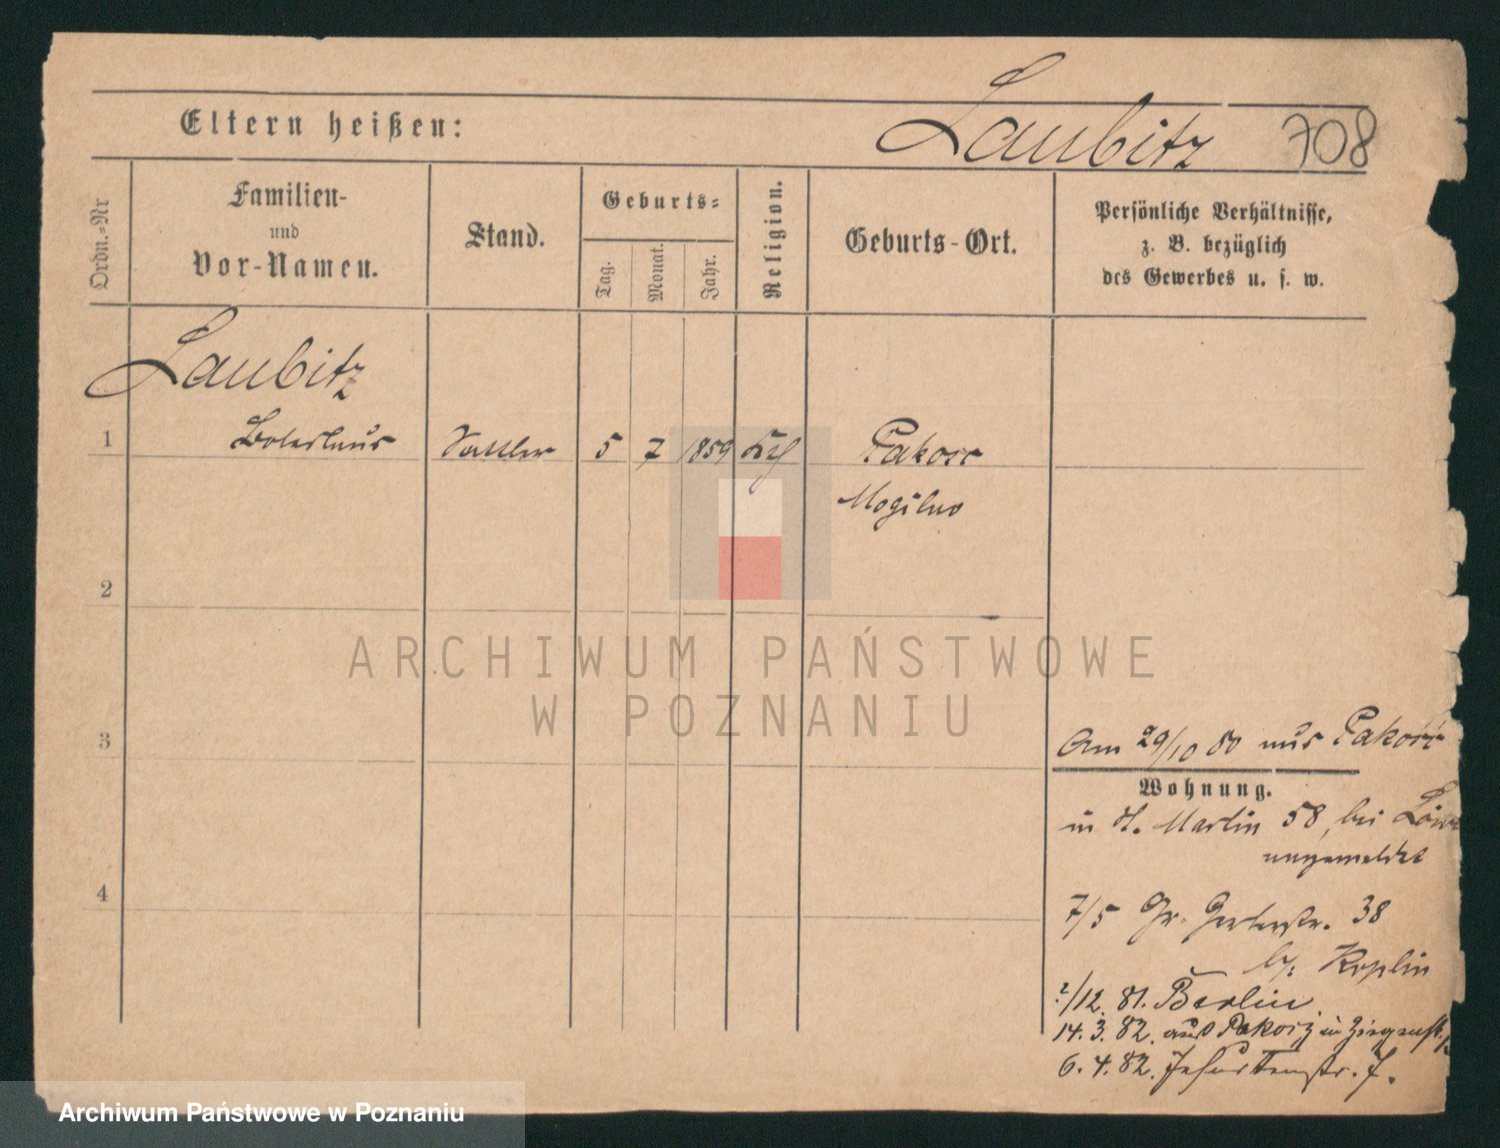 Eltern heißen: Laubitz 708
Ordn.-Nr
Familien-
und
Vor-Namen.
Stand.
Geburts-
Tag.
Monat.
Jahr.
Religion.
Geburts-Ort.
Persönliche Verhältnisse,
z. B. bezüglich
des Gewerbes u. s. w.
Laubitz
1 Boleslaus Sattler 5 7 1859 kth Pakosc
Mogilno
2
3
4
Am 29/10 80 aus Pakość
Wohnung.
in St. Martin 58, bei
ungemeldet
7/5 Gr. Gerberstr. 38
by. Koplin
/12. 81. Berlin.
14. 3. 82. aus Pakosz in
6. 4. 82. 7.
ARCHIWUM PAŃSTWOWE
W POZNANIU
Archiwum Państwowe w Poznaniu